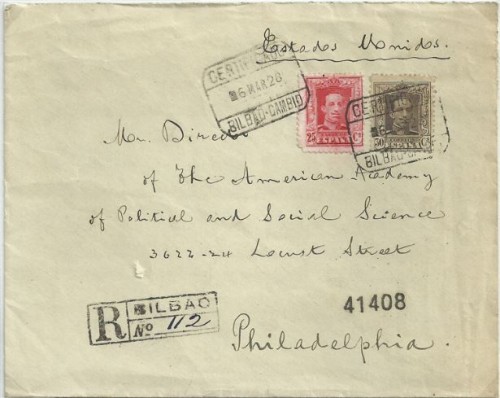 Estados Unidos.
CERTIFICADO
6 MAR 28
BILBAO-CAMBIO
25 ESPAÑA Cs
CERTI
6
30 ESPAÑA Cs
BILBAO-CA
Mr. Director
of The American Academy
of Political and Social Science
3622-24 Locust Street
41408
R BILBAO
No 112
Philadelphia.